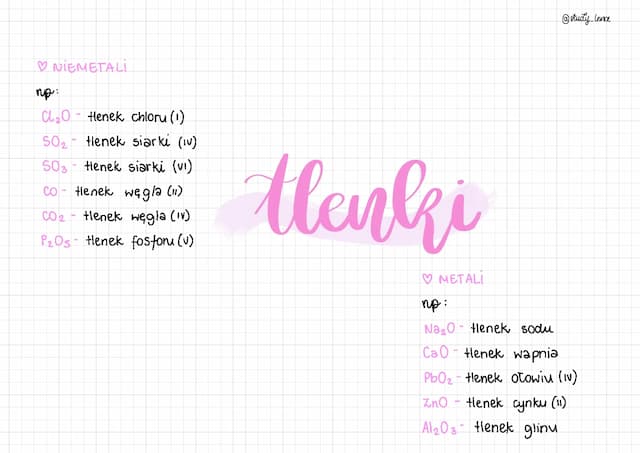 @study_lenae
♡ NIEMETALI
np:
Cl₂O - tlenek chloru (I)
SO₂ - tlenek siarki (IV)
SO₃ - tlenek siarki (VI)
CO - tlenek węgla (II)
CO₂ - tlenek węgla (IV)
P₂O₅ - tlenek fosforu (V)
tlenki
♡ METALI
np:
Na₂O - tlenek sodu
CaO - tlenek wapnia
PbO₂ - tlenek ołowiu (IV)
ZnO - tlenek cynku (II)
Al₂O₃ - tlenek glinu